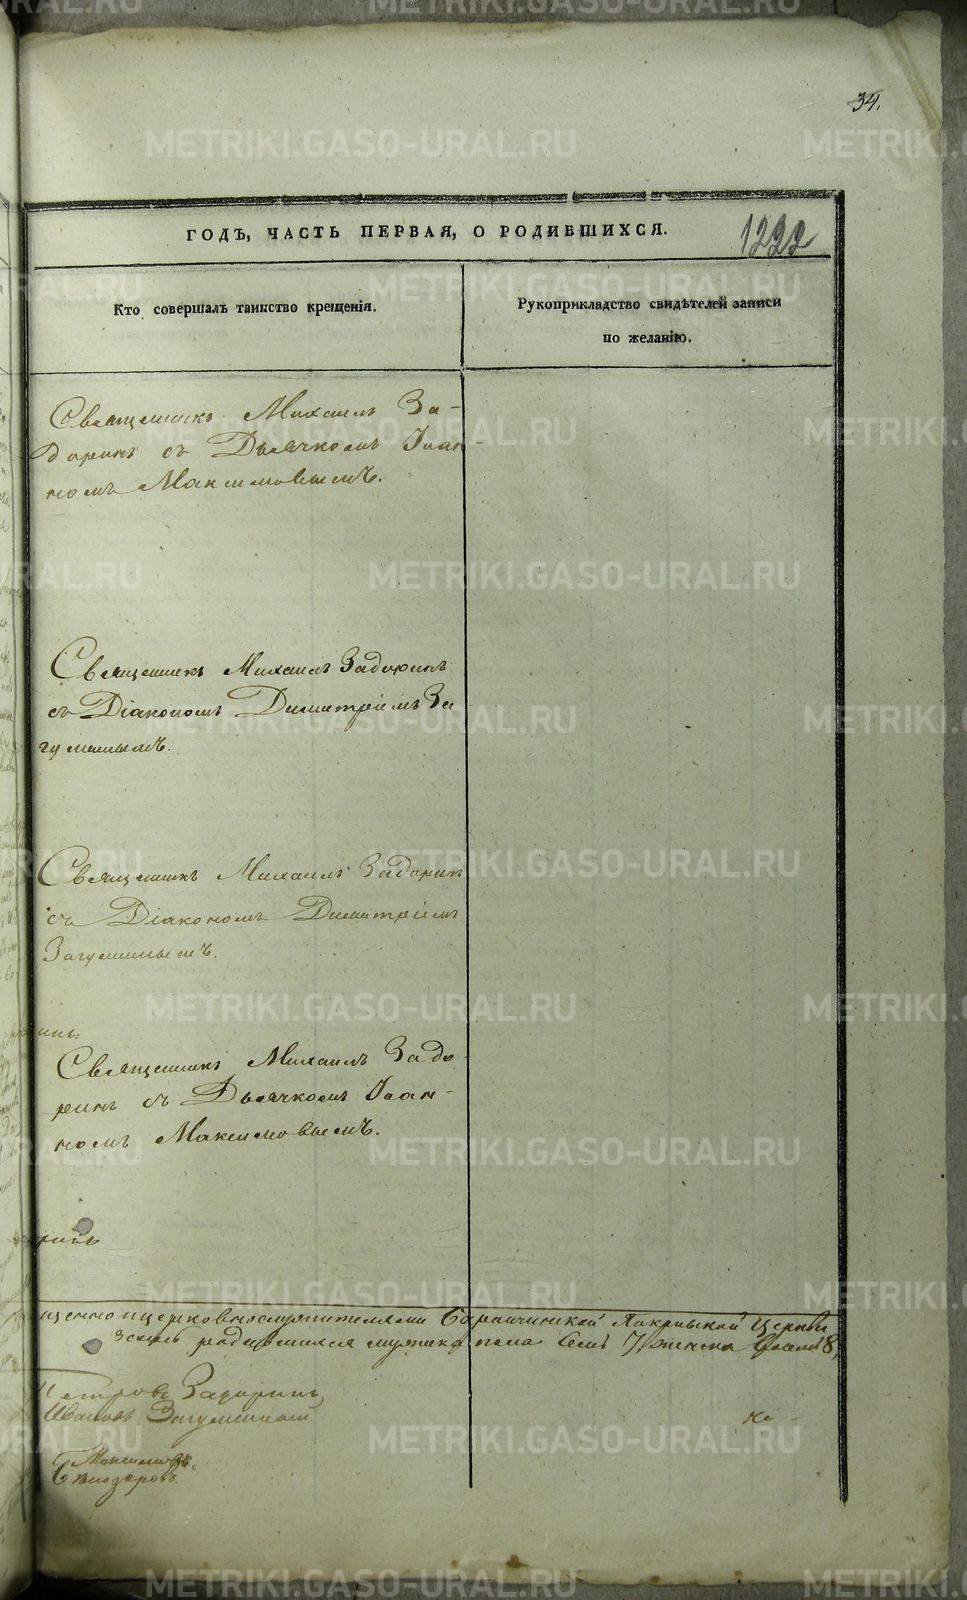 34.
ГОДЪ, ЧАСТЬ ПЕРВАЯ, О РОДИВШИХСЯ.
1222
Кто совершалъ таинство крещенія.
Рукоприкладство свидѣтелей записи
по желанію.
Священникъ Михаилъ За-
доринъ съ Дьячкомъ Іоан-
номъ Максимовымъ.
Священникъ Михаилъ Задоринъ
съ Діакономъ Димитріемъ За
гуменнымъ.
Священникъ Михаилъ Задоринъ
съ Діакономъ Димитріемъ
Загуменнымъ.
Священникъ Михаилъ Задо
ринъ съ Дьячкомъ Іоан-
номъ Максимовымъ.
Церкви
родившихся мужеска пола Семь 7, женска 8,
Петровъ Задоринъ
Ивановъ Загуменный
Максимовъ.
Бѣлозеровъ.
METRIKI.GASO-URAL.RU